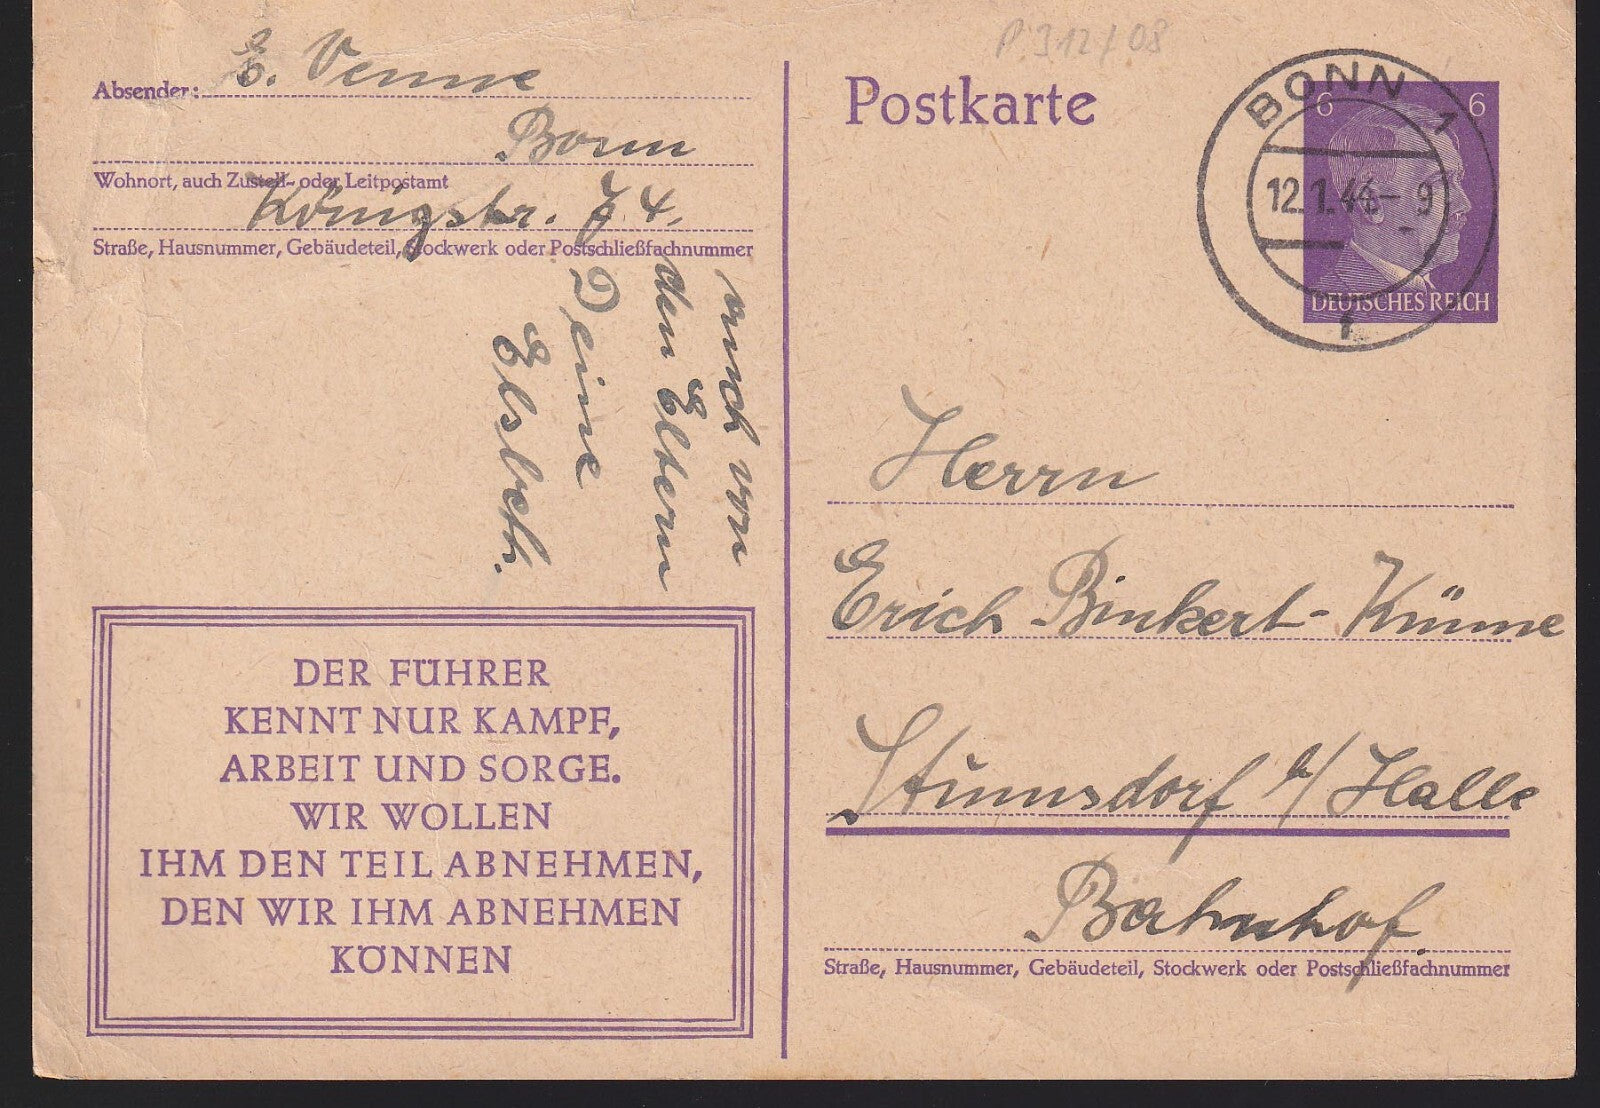 P 312/08
Absender: E. Venne
Bonn
Wohnort, auch Zustell- oder Leitpostamt
Königstr. 74.
Straße, Hausnummer, Gebäudeteil, Stockwerk oder Postschließfachnummer
auch von
den Eltern
Deine
Elsbeth.
DER FÜHRER
KENNT NUR KAMPF,
ARBEIT UND SORGE.
WIR WOLLEN
IHM DEN TEIL ABNEHMEN,
DEN WIR IHM ABNEHMEN
KÖNNEN
Postkarte
BONN 1
12.1.44-9
f
6 6
DEUTSCHES REICH
Herrn
Erich Binkert-Künne
Stumsdorf b/Halle
Bahnhof.
Straße, Hausnummer, Gebäudeteil, Stockwerk oder Postschließfachnummer